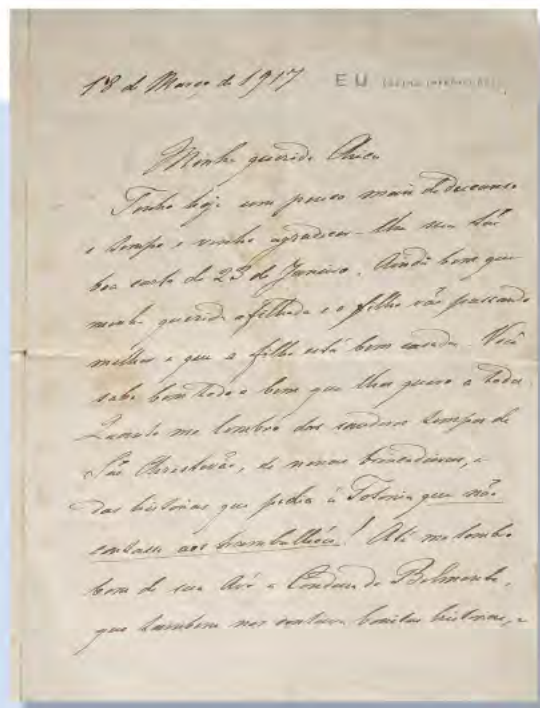 18 de Março de 1917 EU
Minha querida
Tenho hoje um pouco mais de descanso
e tempo e venho agradecer-lhe sua tão
boa carta de 23 de Janeiro. Ainda bem que
minha querida afilhada e o filho vão passando
melhor e que a filha está bem casada. Você
sabe bem todo o bem que lhes quero a todos
Quanto me lembro dos saudosos tempos de
São Christovão, de nossas brincadeiras, e
das historias que pedia á Totonia que não
contasse aos trambulhões! Até me lembro
bem de sua Avó a Condessa de Belmonte,
que tambem nos contava bonitas historias, e